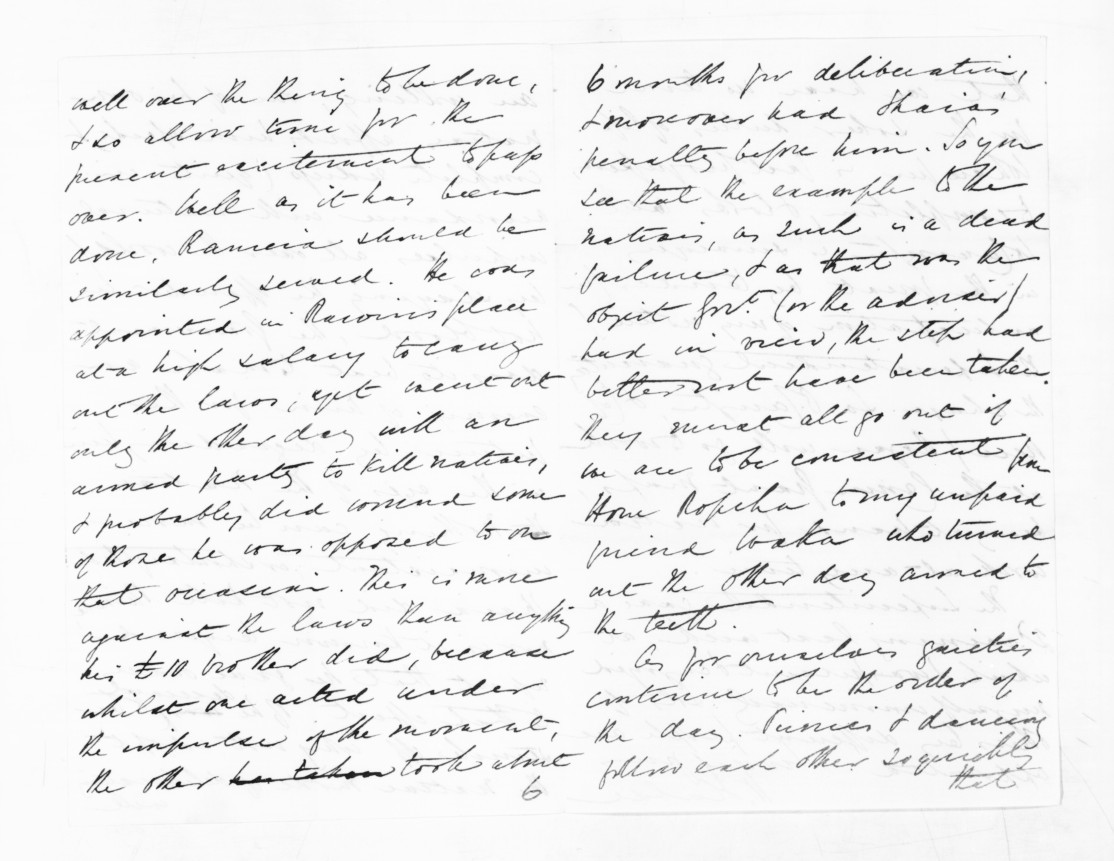 well over the thing to be done,
& so allow time for the
present excitement to pass
over. Well as it has been
done, Rameia should be
similarly served. He was
appointed in Rawiri's place
at a high salary to carry
out the laws, yet went out
only the other day with an
armed party to kill natives,
& probably did wound some
of those he was opposed to on
that occasion. This is more
against the laws than anything
his £10 brother did, because
whilst one acted under
the impulse of the moment,
the other has taken took about
6
6 months for deliberation,
& moreover had Ihaia's
penalty before him. So you
see that the example to the
natives, as such is a dead
failure, & as that was the
object Govt. (or the adviser)
had in view, the step had
better not have been taken.
They must all go out if
we are to be consistent from
Hone Ropiha to my unpaid
friend Waka who turned
out the other day armed to
the teeth.
As for ourselves gaieties
continue to be the order of
the day. Picnics & dancing
follow each other so quickly
that